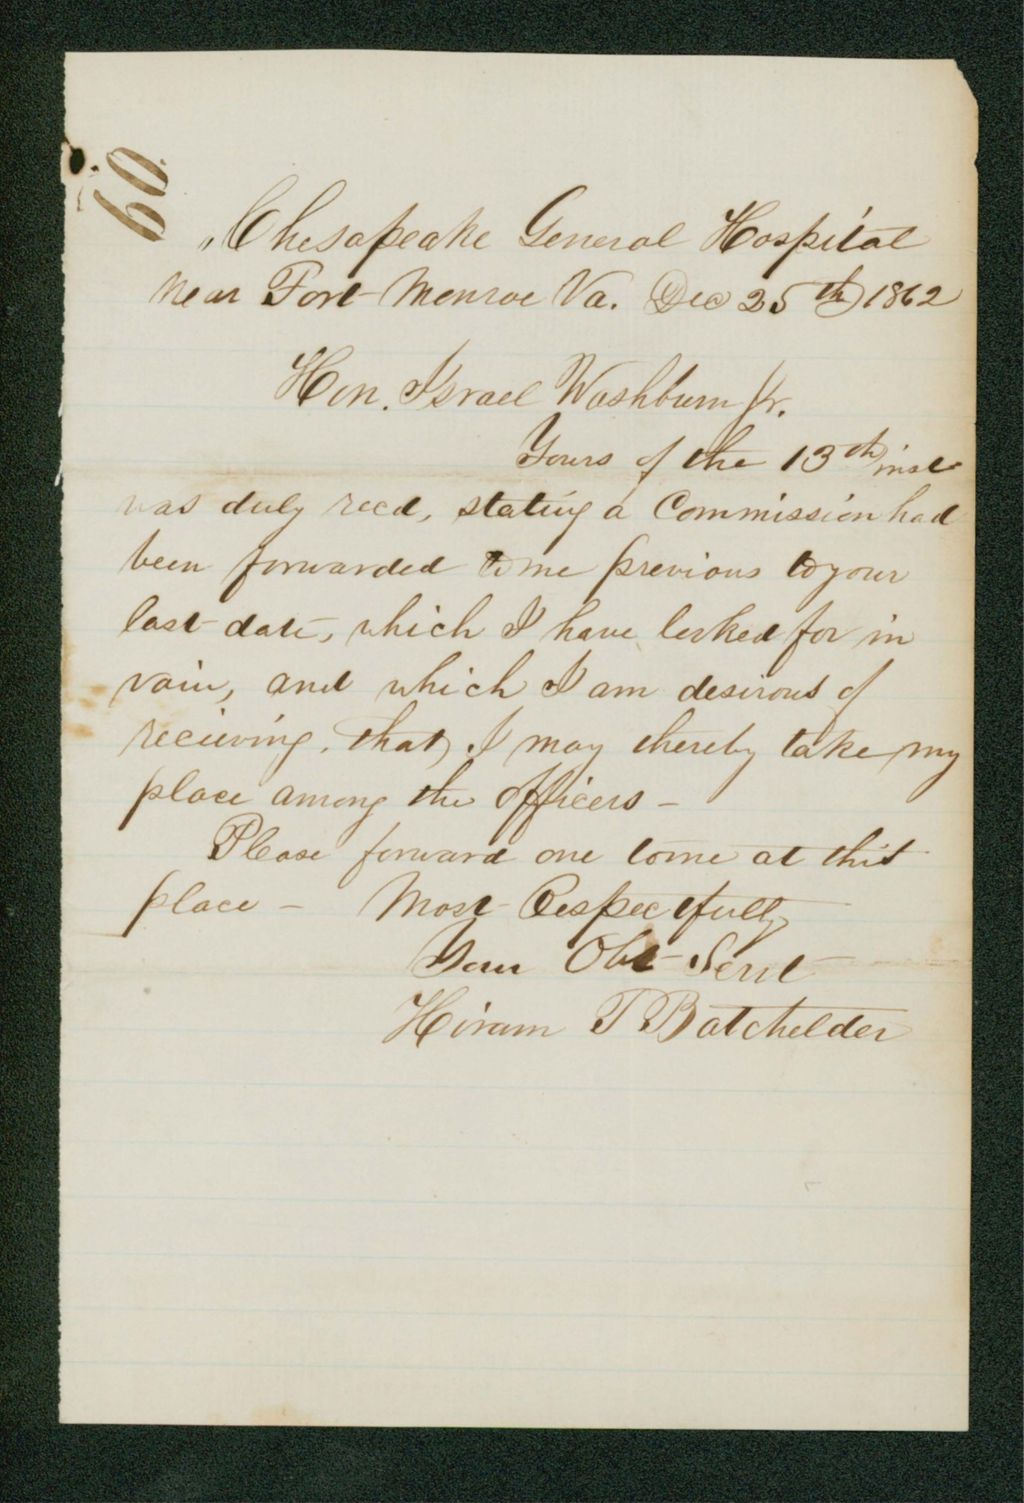 60.
"Chesapeake General Hospital
Near Fort Monroe Va. Dec 25th 1862
Hon. Israel Washburn Jr.
Yours of the 13th inst
was duly recd, stating a Commission had
been forwarded to me previous to your
last date, which I have looked for in
vain, and which I am desirous of
recieving, that, I may thereby take my
place among the officers -
Please forward one to me at this
place - Most Respectfully
Your Obt Servt
Hiram T Batchelder